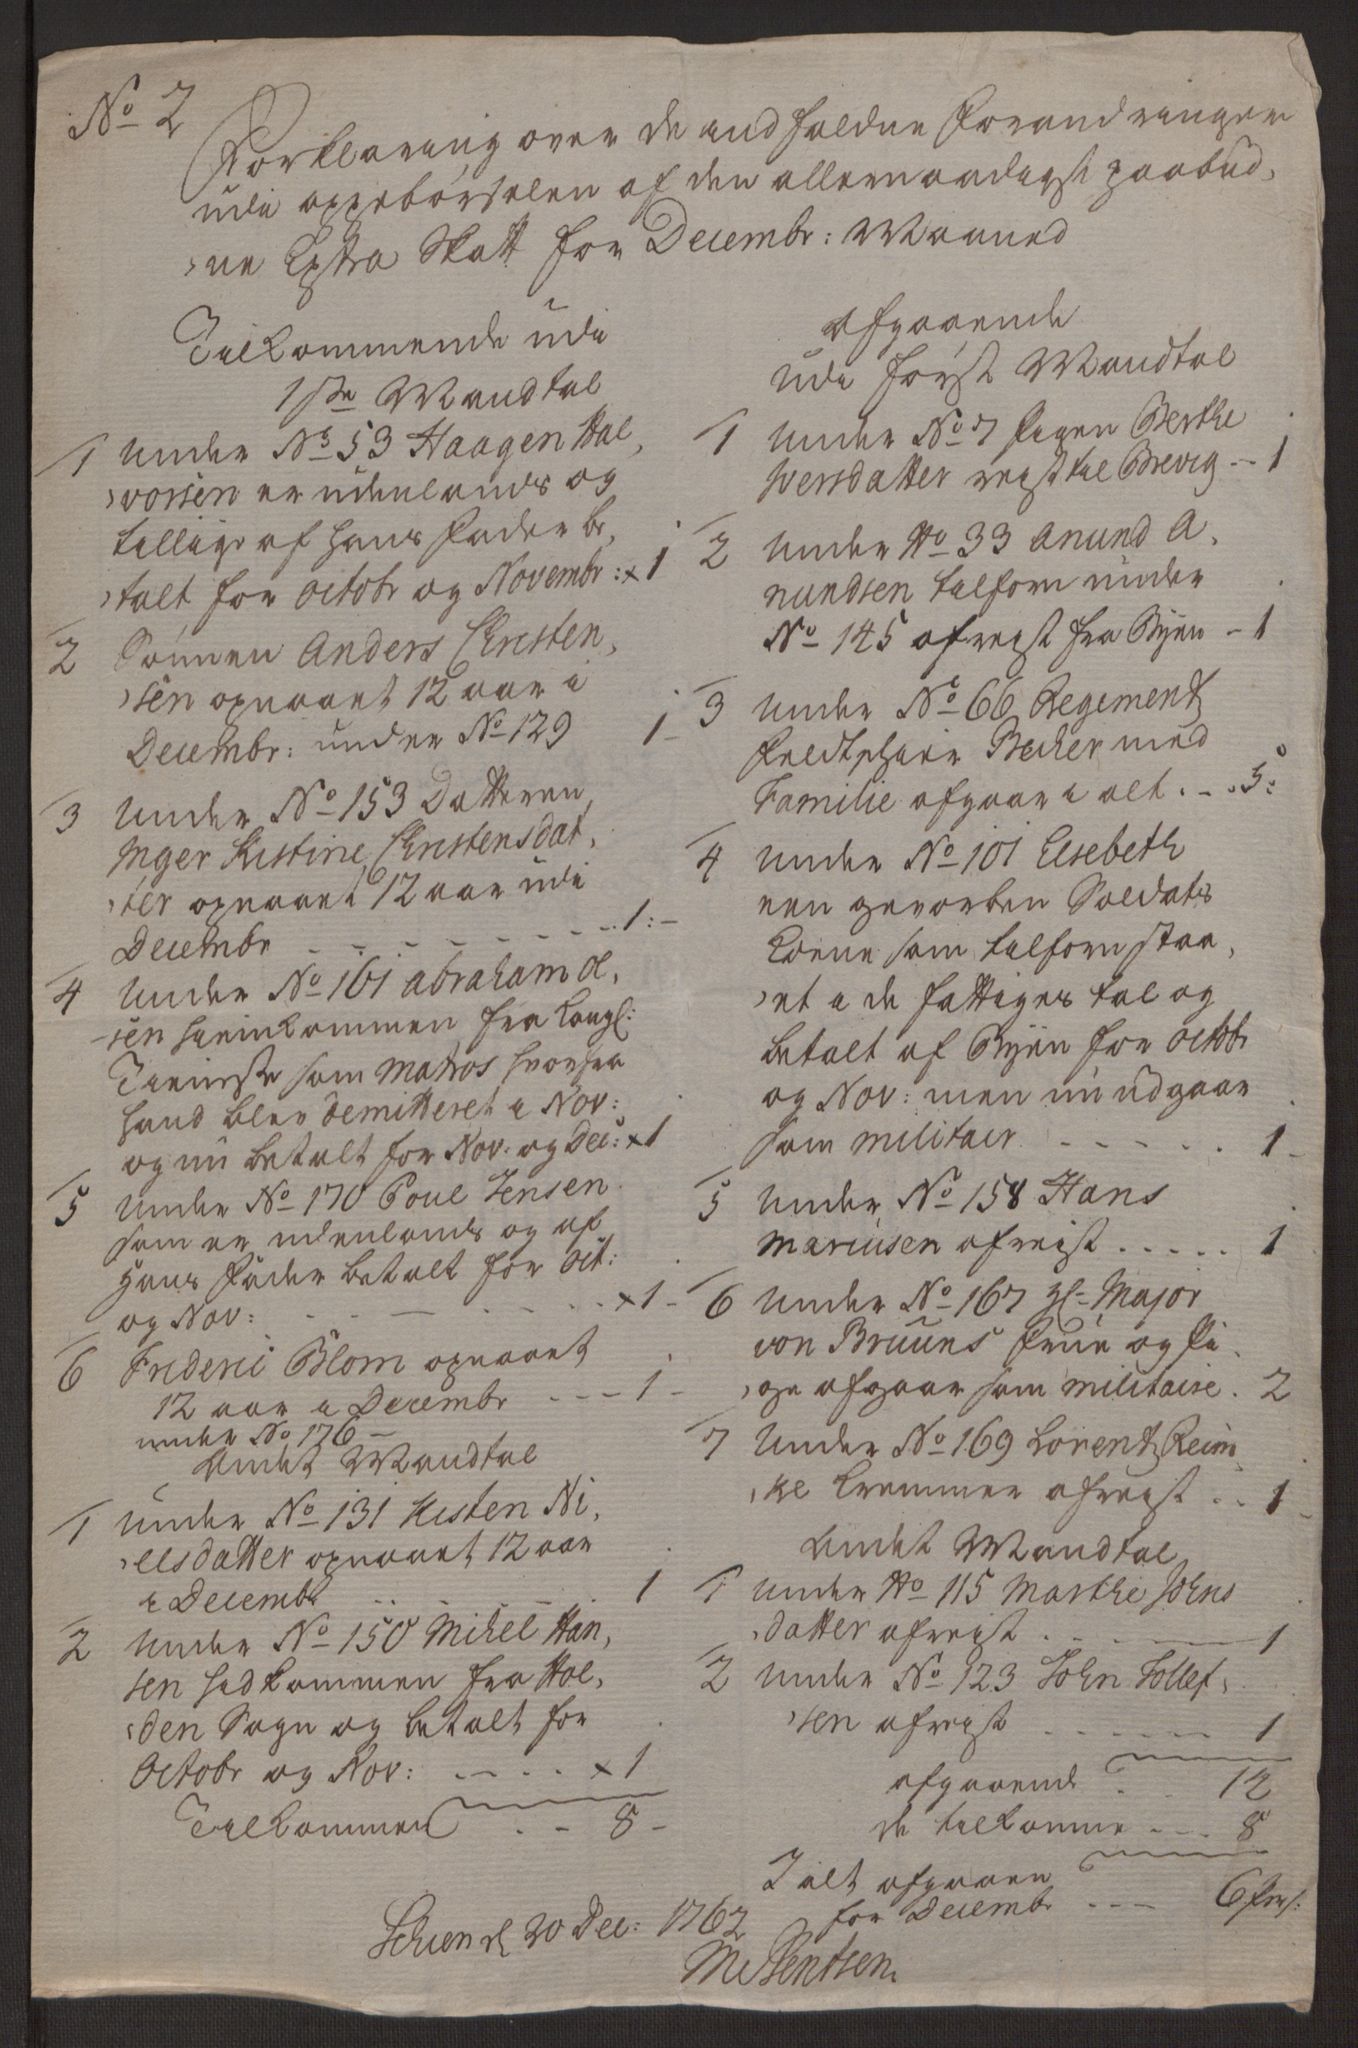 No 2
Forklaring over de indfaldne Forandringer
udi oppebørselen af den allernaadigst paabud,
ne Extra Skatt for Decembr: Maaned
Tilkommende udi
1ste Mandtal
1 Under No 53 Haagen Hal,
vorsen er udenlands og
tillige af hans Fader be,
talt for Octobr og Novembr: x 1
2 Sønnen Anders Christen,
sen opnaaet 12 aar i
Decembr: under No 129 1 -
3 Under No 153 Datteren
Inger Kistine Christensdat,
ter opnaaet 12 aar udi
Decembr - - - - 1:-
4 Under No 161 Abraham Ol,
sen hiemkommen fra Kongl:
Tieniste som Matros hvorfra
hand blev demitteret i Nov:
og nu betalt for Nov. og Dec: x 1
5 Under No 170 Poul Jensen
som er udenlands og af
Hans Fader betalt for Oct:
og Nov: - - - - x 1 -
6 Frideric Blom opnaaet
12 aar i Decembr - - - 1 -
under No 176 -
Andet Mandtal
1 Under No 131 Kisten Ni,
elsdatter opnaaet 12 aar
i Decembr - - - 1
2 Under No 150 Mikel Han,
sen hidkommen fra Hol,
den Sogn og betalt for
Octobr og Nov: - - - x 1
Tilkommen . - 8 -
Afgaaende
udi først Mandtal
1 Under No 7 Pigen Berthe
Iversdatter reist til Brevig - 1
2 Under No 33 Anund A,
nundsen tilforn under
No 145 afreist fra Byen - 1
3 Under No 66 Regiments
Feldtskiær Becker med
Familie afgaar i alt . - . 5:
4 Under No 101 Elsebeth
een gevorben Soldats
Kone som tilforn staa,
et i de fattiges tal og
betalt af Byen for Octobr
og Nov: men nu udgaar
som militair - - - - 1 -
5 Under No 158 Hans
Mariusen afreist . . . . . 1
6 Under No 167 Hr Major
von Bruuns Frue og Pi,
ge afgaar som militaire . 2
7 Under No 169 Lorentz Reim,
ke Kremmer afreist . . 1 -
Andet Mandtal
1 Under No 115 Marthe Johns
datter afreist . - - - 1
2 Under No 123 John Tollef,
sen afreist - - - - 1
afgaaende . . 12
de tilkomne - - - 8
I alt afgaaen
for Decembr - - - 6 Pers:
Schien d 20 Dec: 1762